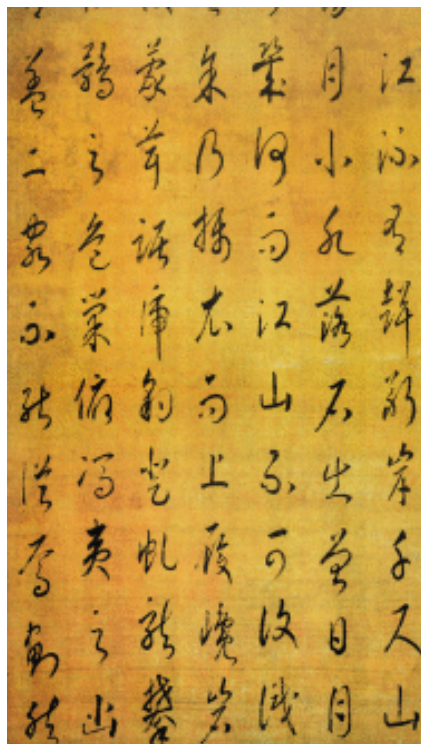 江流有聲斷岸千尺山
月小水落石出曾日月
幾何而江山不可復識
矣乃攝衣而上履巉岩
蒙茸踞虎豹登虬龍攀
鶻之危巢俯馮夷之幽
蓋二客不能從焉劃然